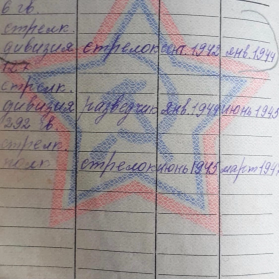 6 гв.
стрелк.
дивизия стрелок сент. 1942 янв. 1944
127
стрелк.
дивизия разведчик янв 1944 июнь 1945
292 гв.
стрелк.
полк стрелок июнь 1945 март 1947